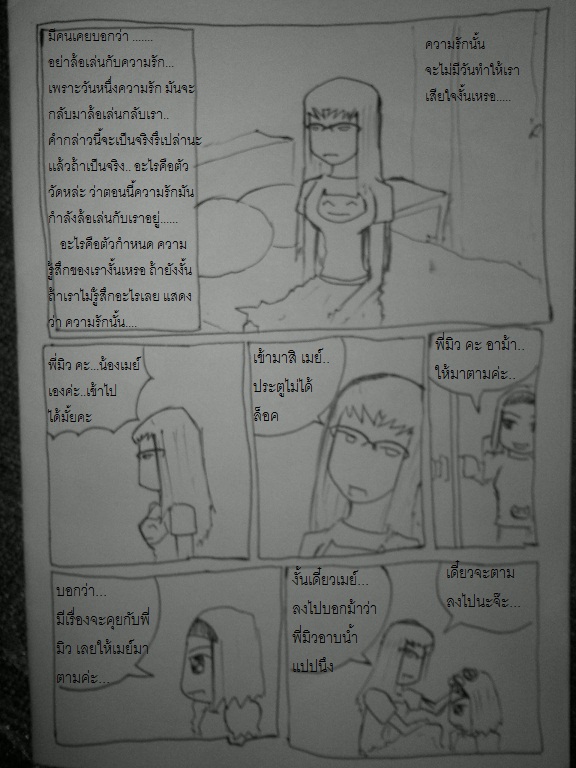 มีคนเคยบอกว่า .......
อย่าล้อเล่นกับความรัก...
เพราะวันหนึ่งความรัก มันจะ
กลับมาล้อเล่นกลับเรา..
คำกล่าวนี้จะเป็นจริงรึเปล่านะ
แล้วถ้าเป็นจริง.. อะไรคือตัว
วัดหล่ะ ว่าตอนนี้ความรักมัน
กำลังล้อเล่นกับเราอยู่......
อะไรคือตัวกำหนด ความ
รู้สึกของเรางั้นเหรอ ถ้ายังงั้น
ถ้าเราไม่รู้สึกอะไรเลย แสดง
ว่า ความรักนั้น....
ความรักนั้น
จะไม่มีวันทำให้เรา
เสียใจงั้นเหรอ.....
พี่มิว คะ...น้องเมย์
เองค่ะ..เข้าไป
ได้มั้ยคะ
เข้ามาสิ เมย์..
ประตูไม่ได้
ล็อค
พี่มิว คะ อาม้า..
ให้มาตามค่ะ..
บอกว่า...
มีเรื่องจะคุยกับพี่
มิว เลยให้เมย์มา
ตามค่ะ...
งั้นเดี๋ยวเมย์...
ลงไปบอกม้าว่า
พี่มิวอาบน้ำ
แปปนึง
เดี๋ยวจะตาม
ลงไปนะจ๊ะ...